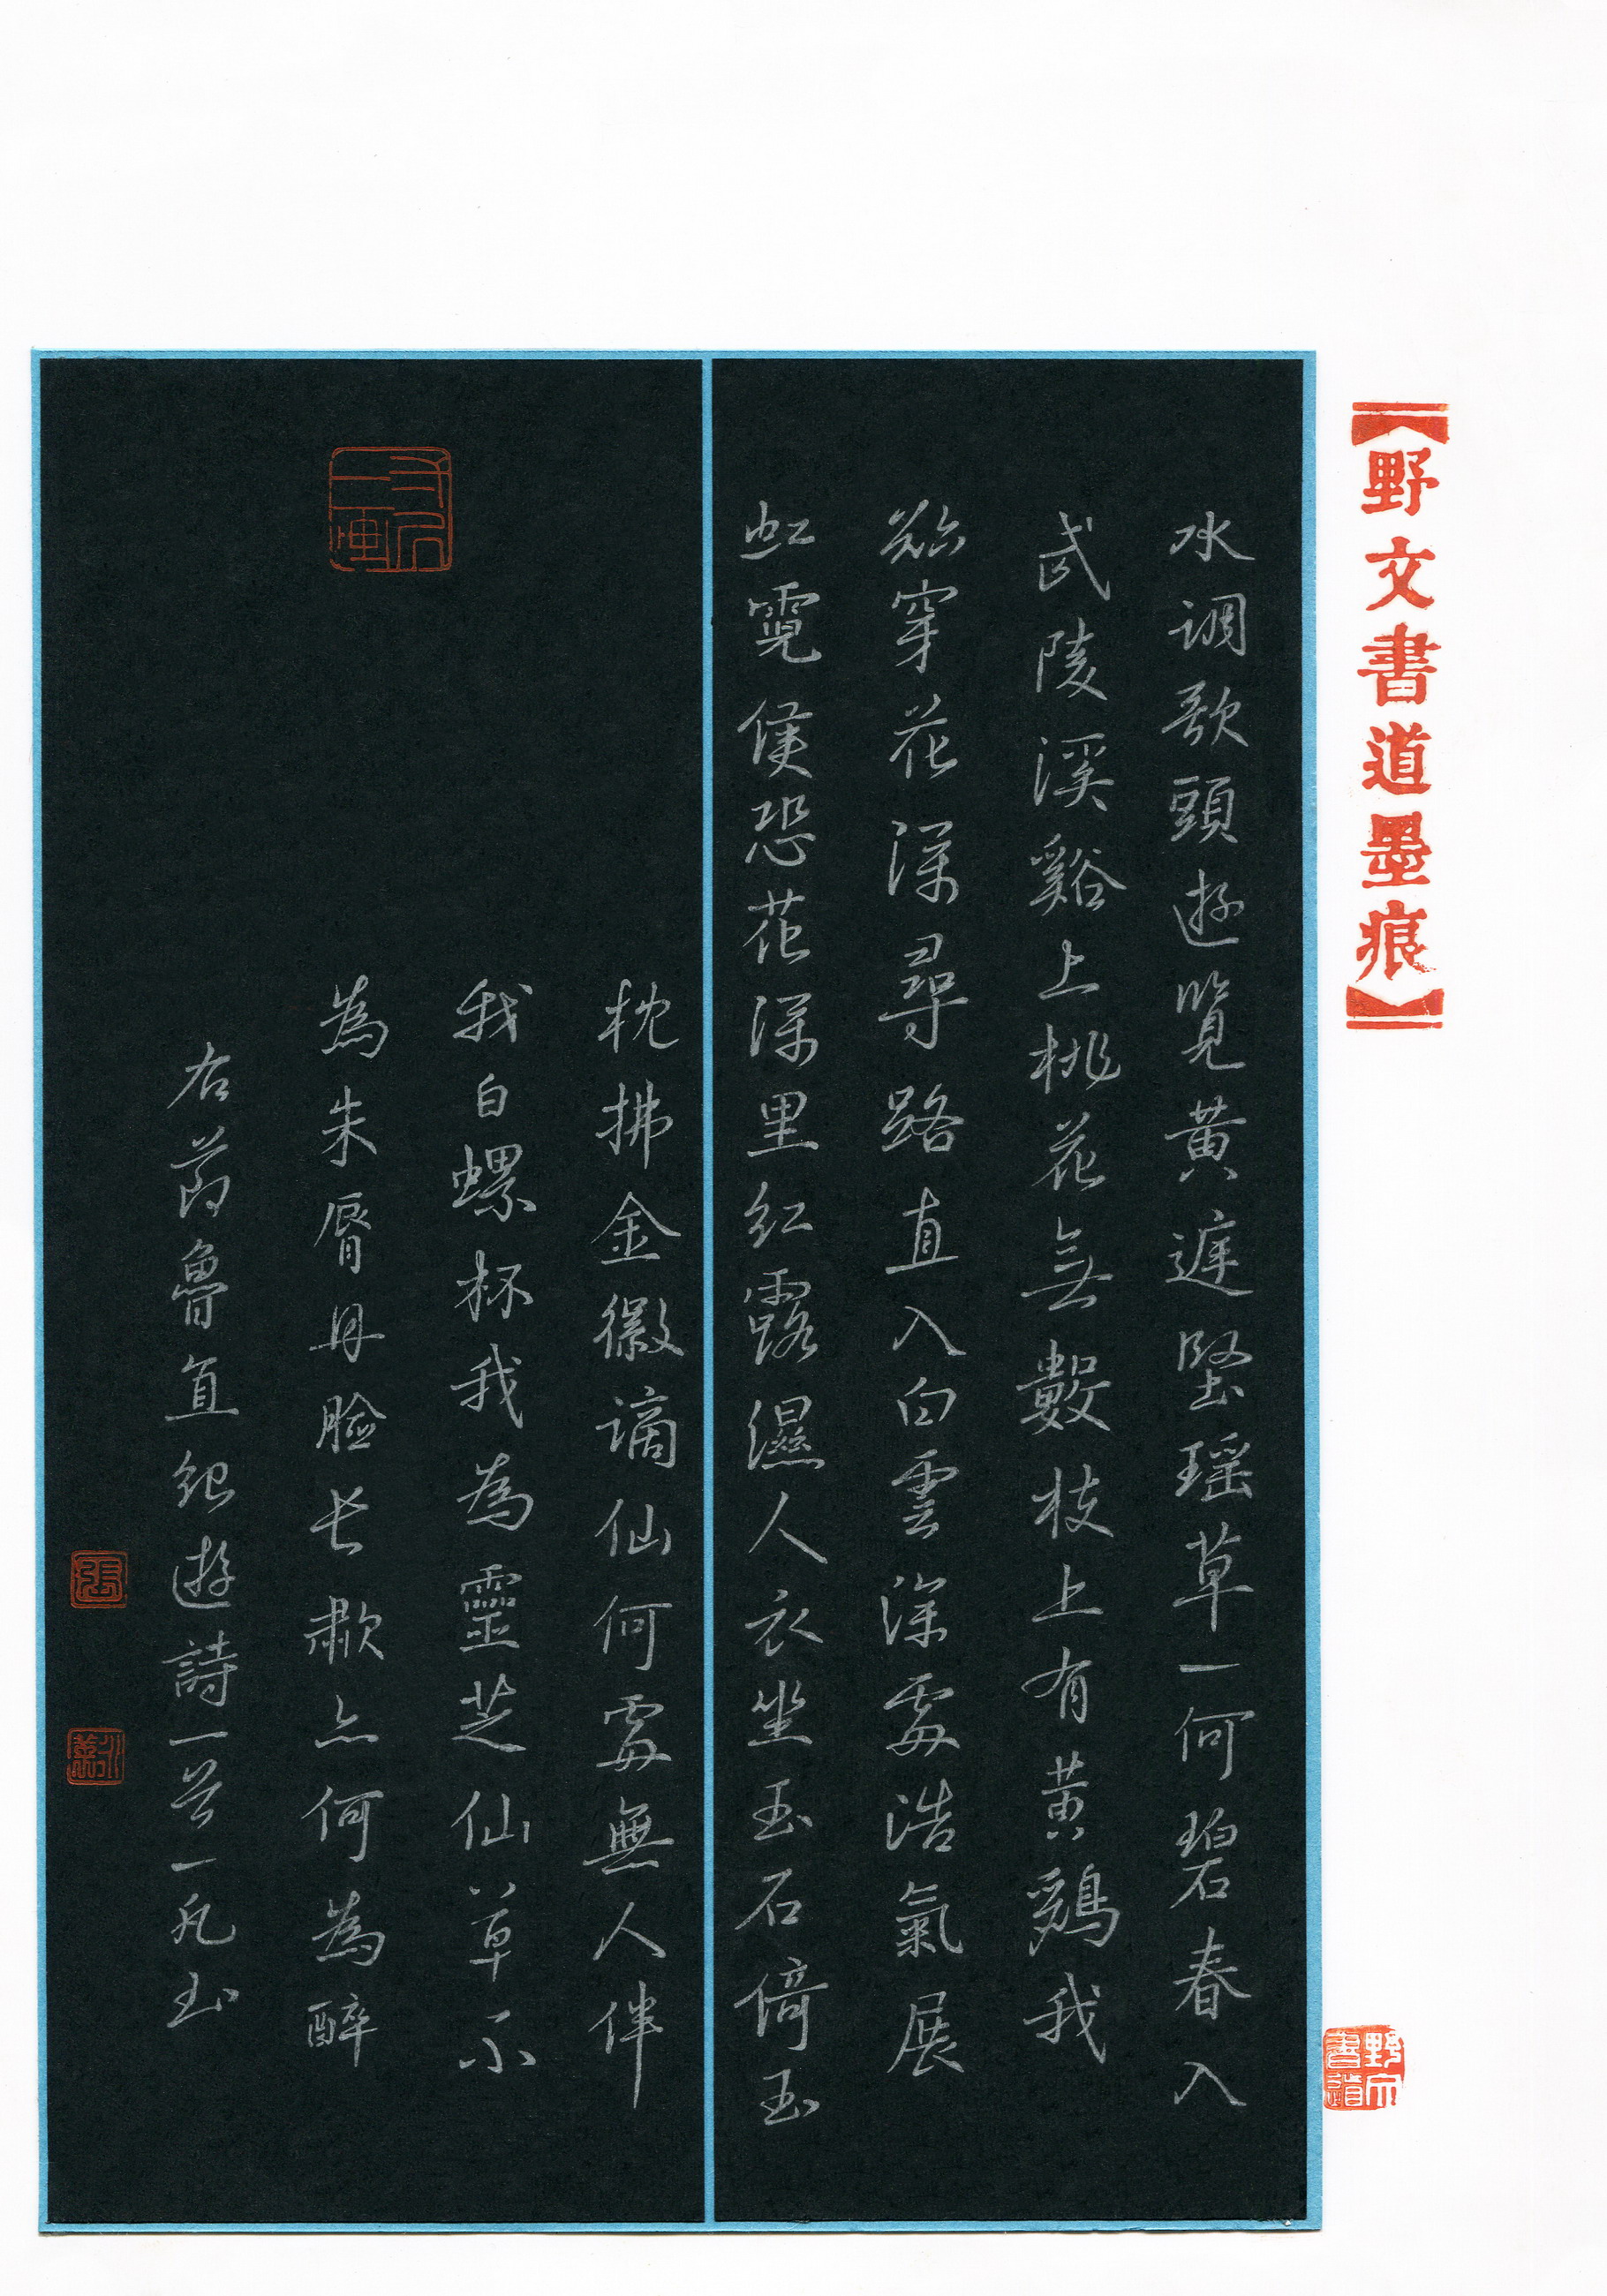 【野文書道墨痕】
水调歌頭遊覽黄庭堅瑶草一何碧春入
武陵溪谿上桃花無數枝上有黄鸝我
欲穿花深尋路直入白雲深處浩氣展
虹霓僅恐花深里紅露濕人衣坐玉石倚玉
枕拂金徽謫仙何處無人伴
我白螺杯我為靈芝仙草不
為朱脣丹臉長歗亦何為醉
右節魯直紀遊詩一首一凡书
張
野文書道